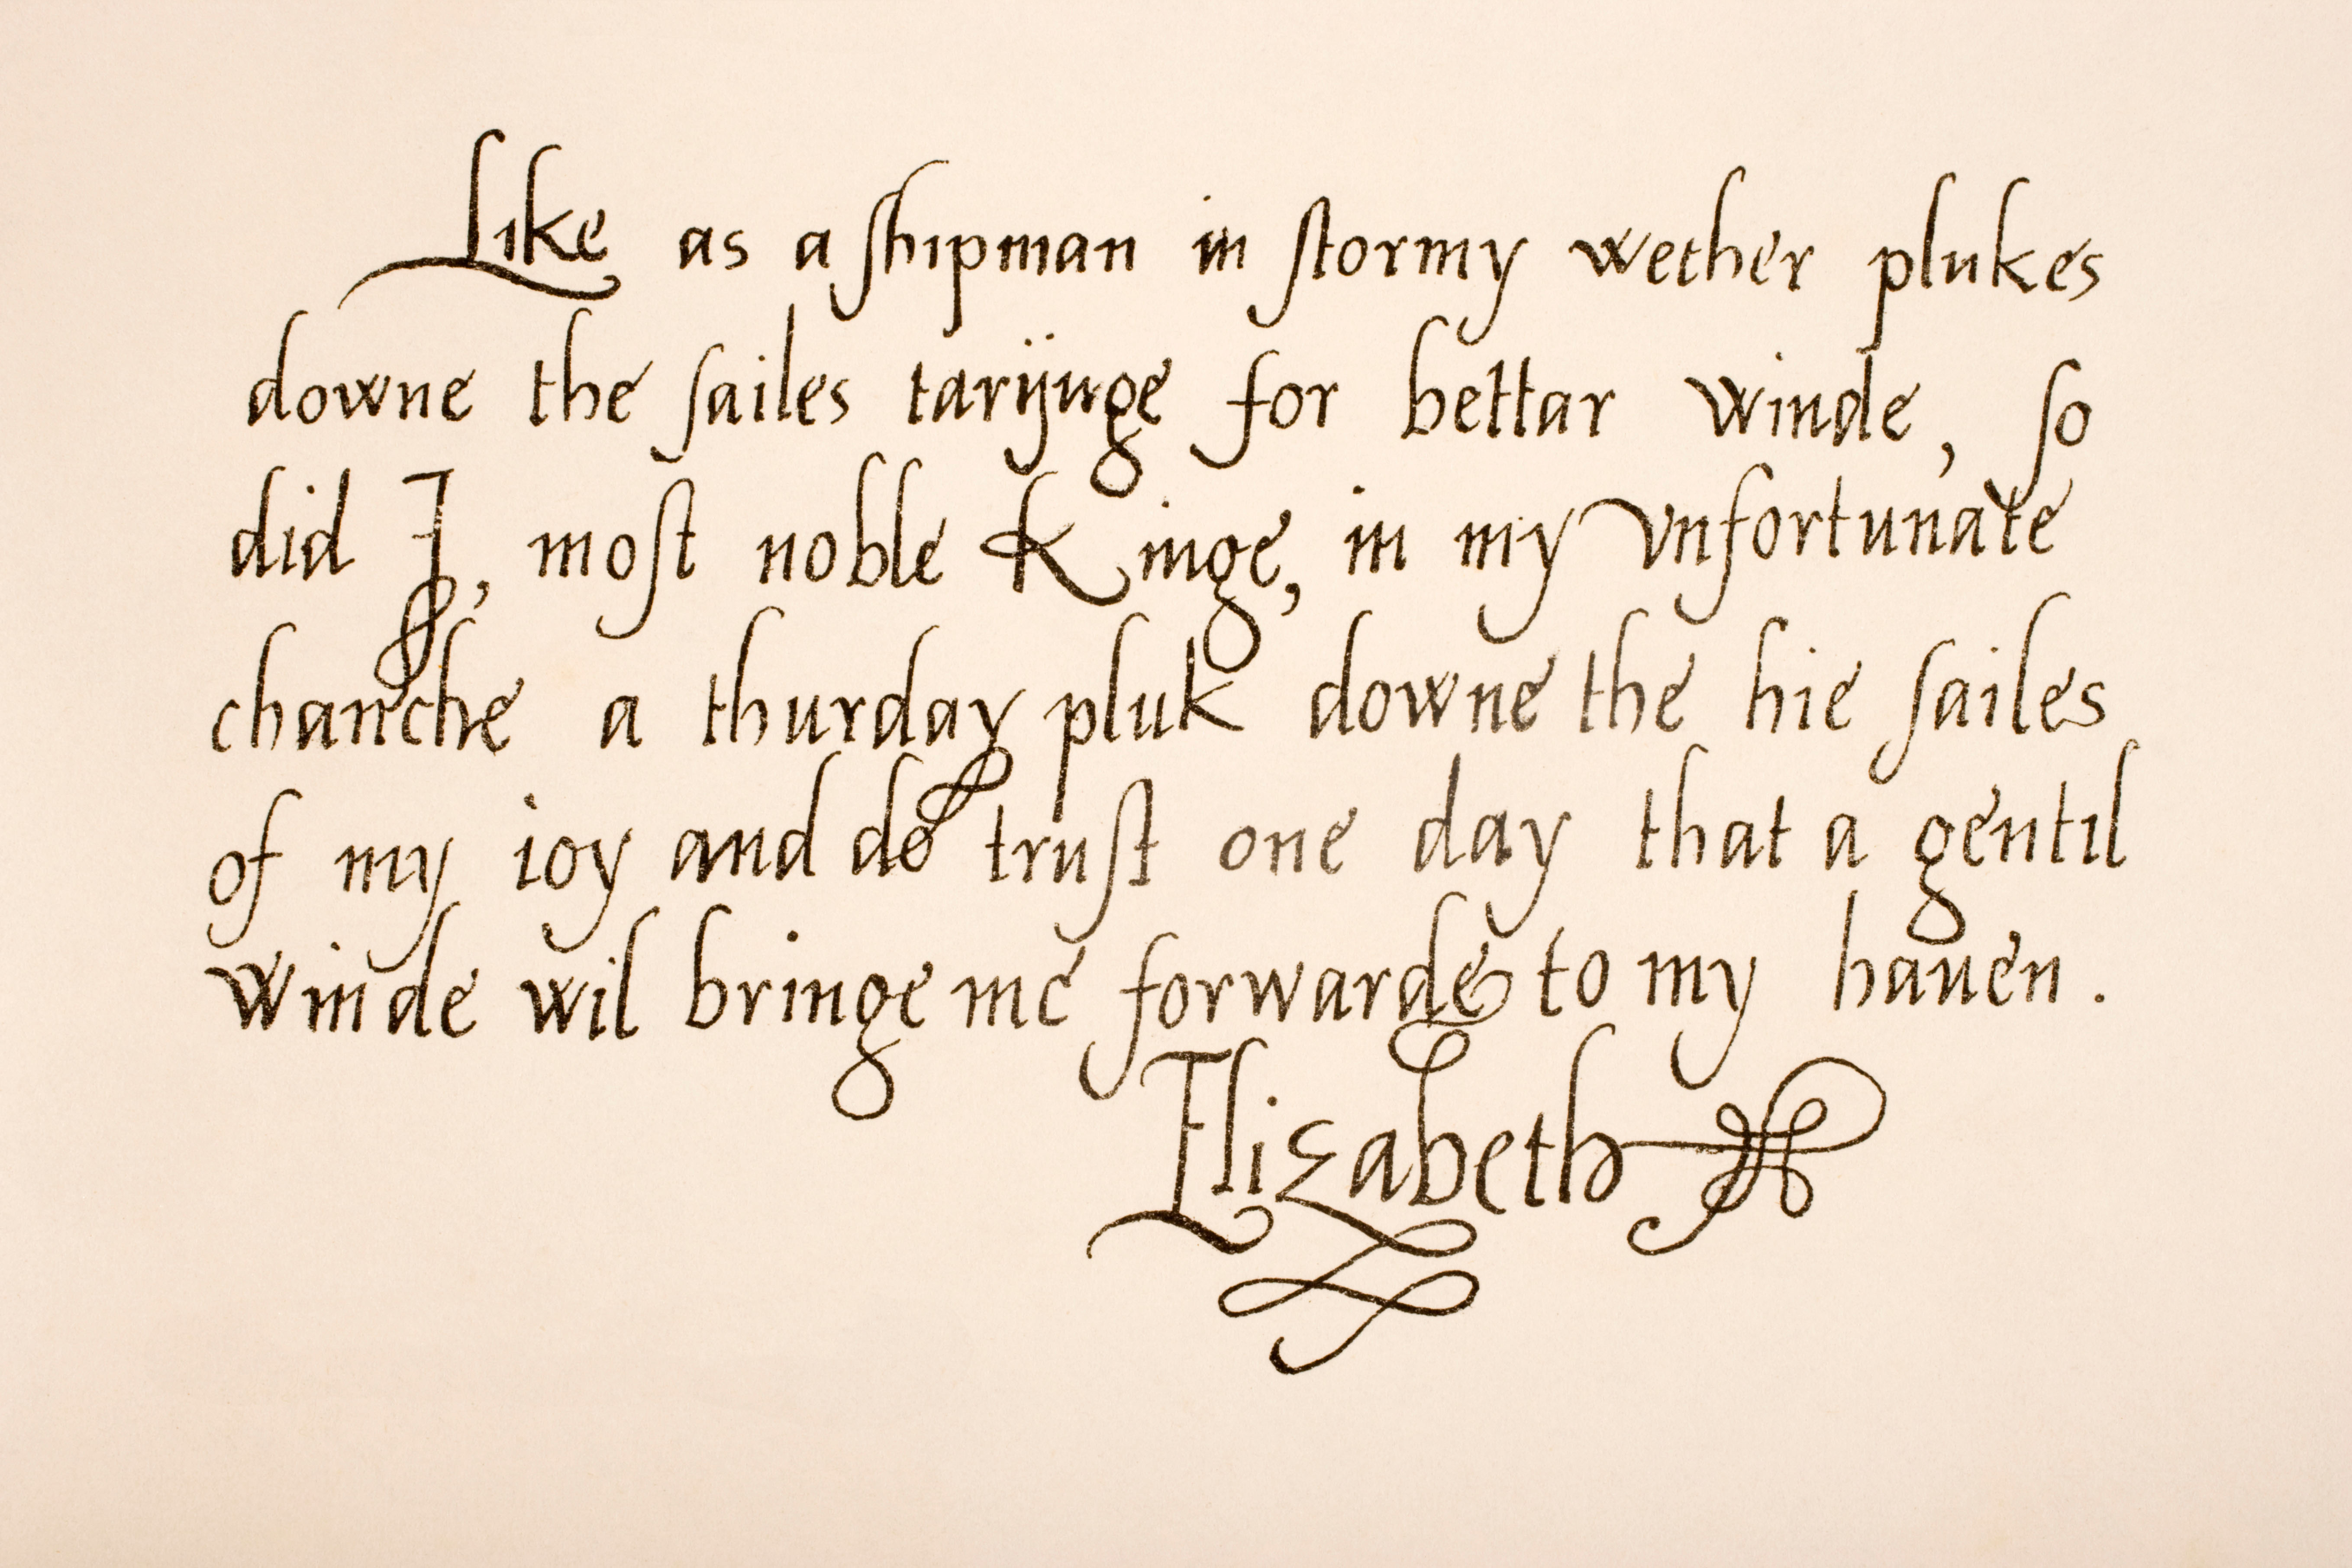 Like as a ſhipman in ſtormy wether plukes
downe the ſailes tarijnge for bettar winde, ſo
did I, moſt noble Kinge, in my vnfortunate
chanche a thurday pluk downe the hie ſailes
of my ioy and do truſt one day that a gentil
winde wil bringe me forwarde to my hauen.
Elizabeth